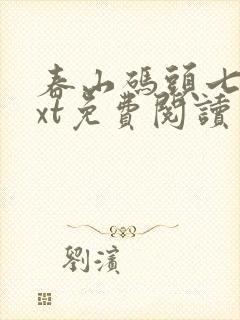 春山碼頭七
xt免費閱讀
劉濱